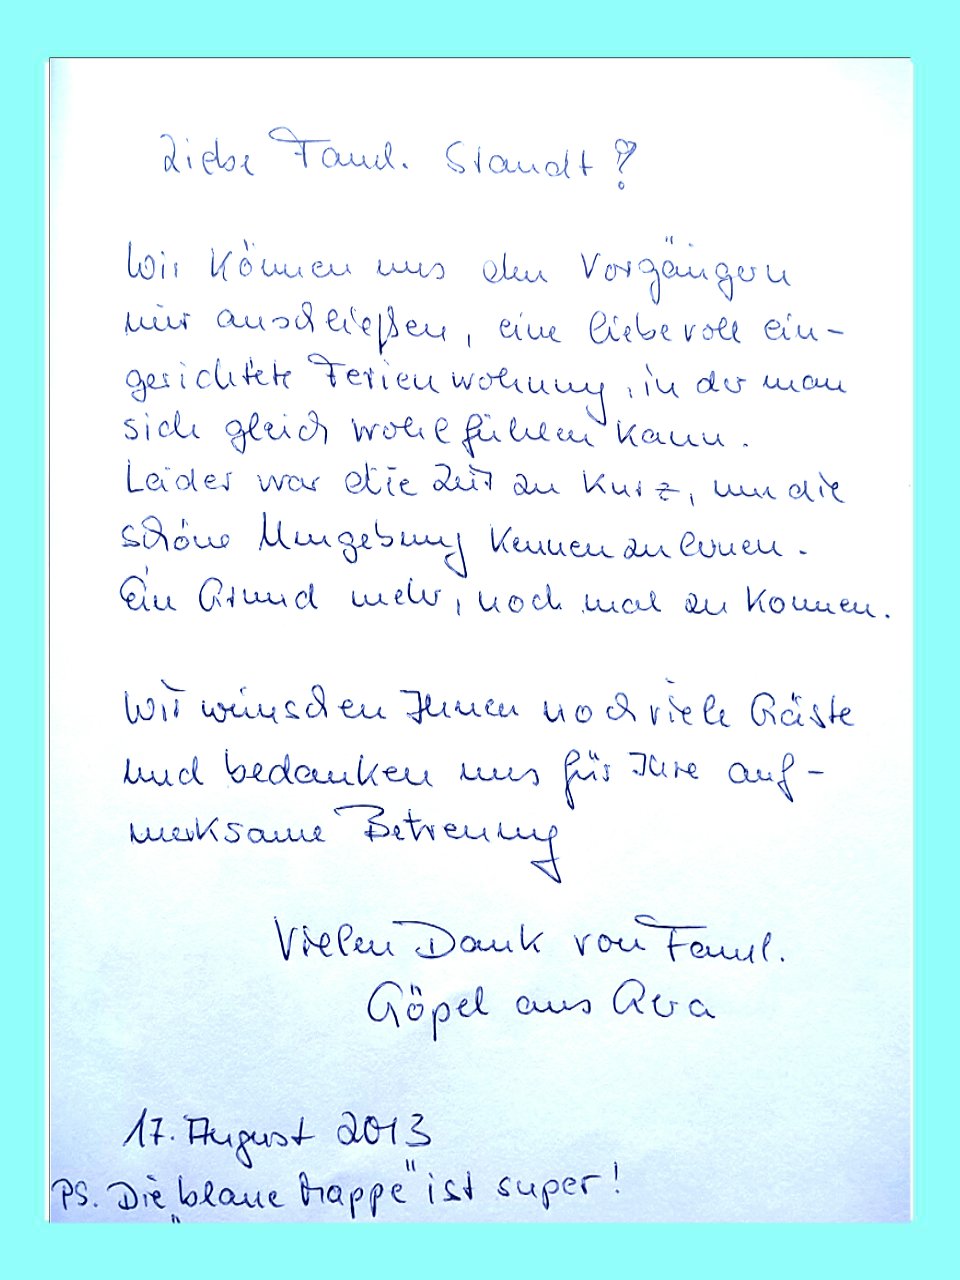 Liebe Faml. Staudt!
Wir können uns den Vorgängern
nur anschließen, eine liebevoll ein-
gerichtete Ferienwohnung, in der man
sich gleich wohlfühlen kann.
Leider war die Zeit zu kurz, um die
schöne Umgebung kennenzulernen.
Ein Grund mehr, nochmal zu kommen.
Wir wünschen Ihnen noch viele Gäste
und bedanken uns für Ihre auf-
merksame Betreuung
Vielen Dank von Faml.
Göpel aus
17. August 2013
PS. Die „blaue Mappe" ist super!